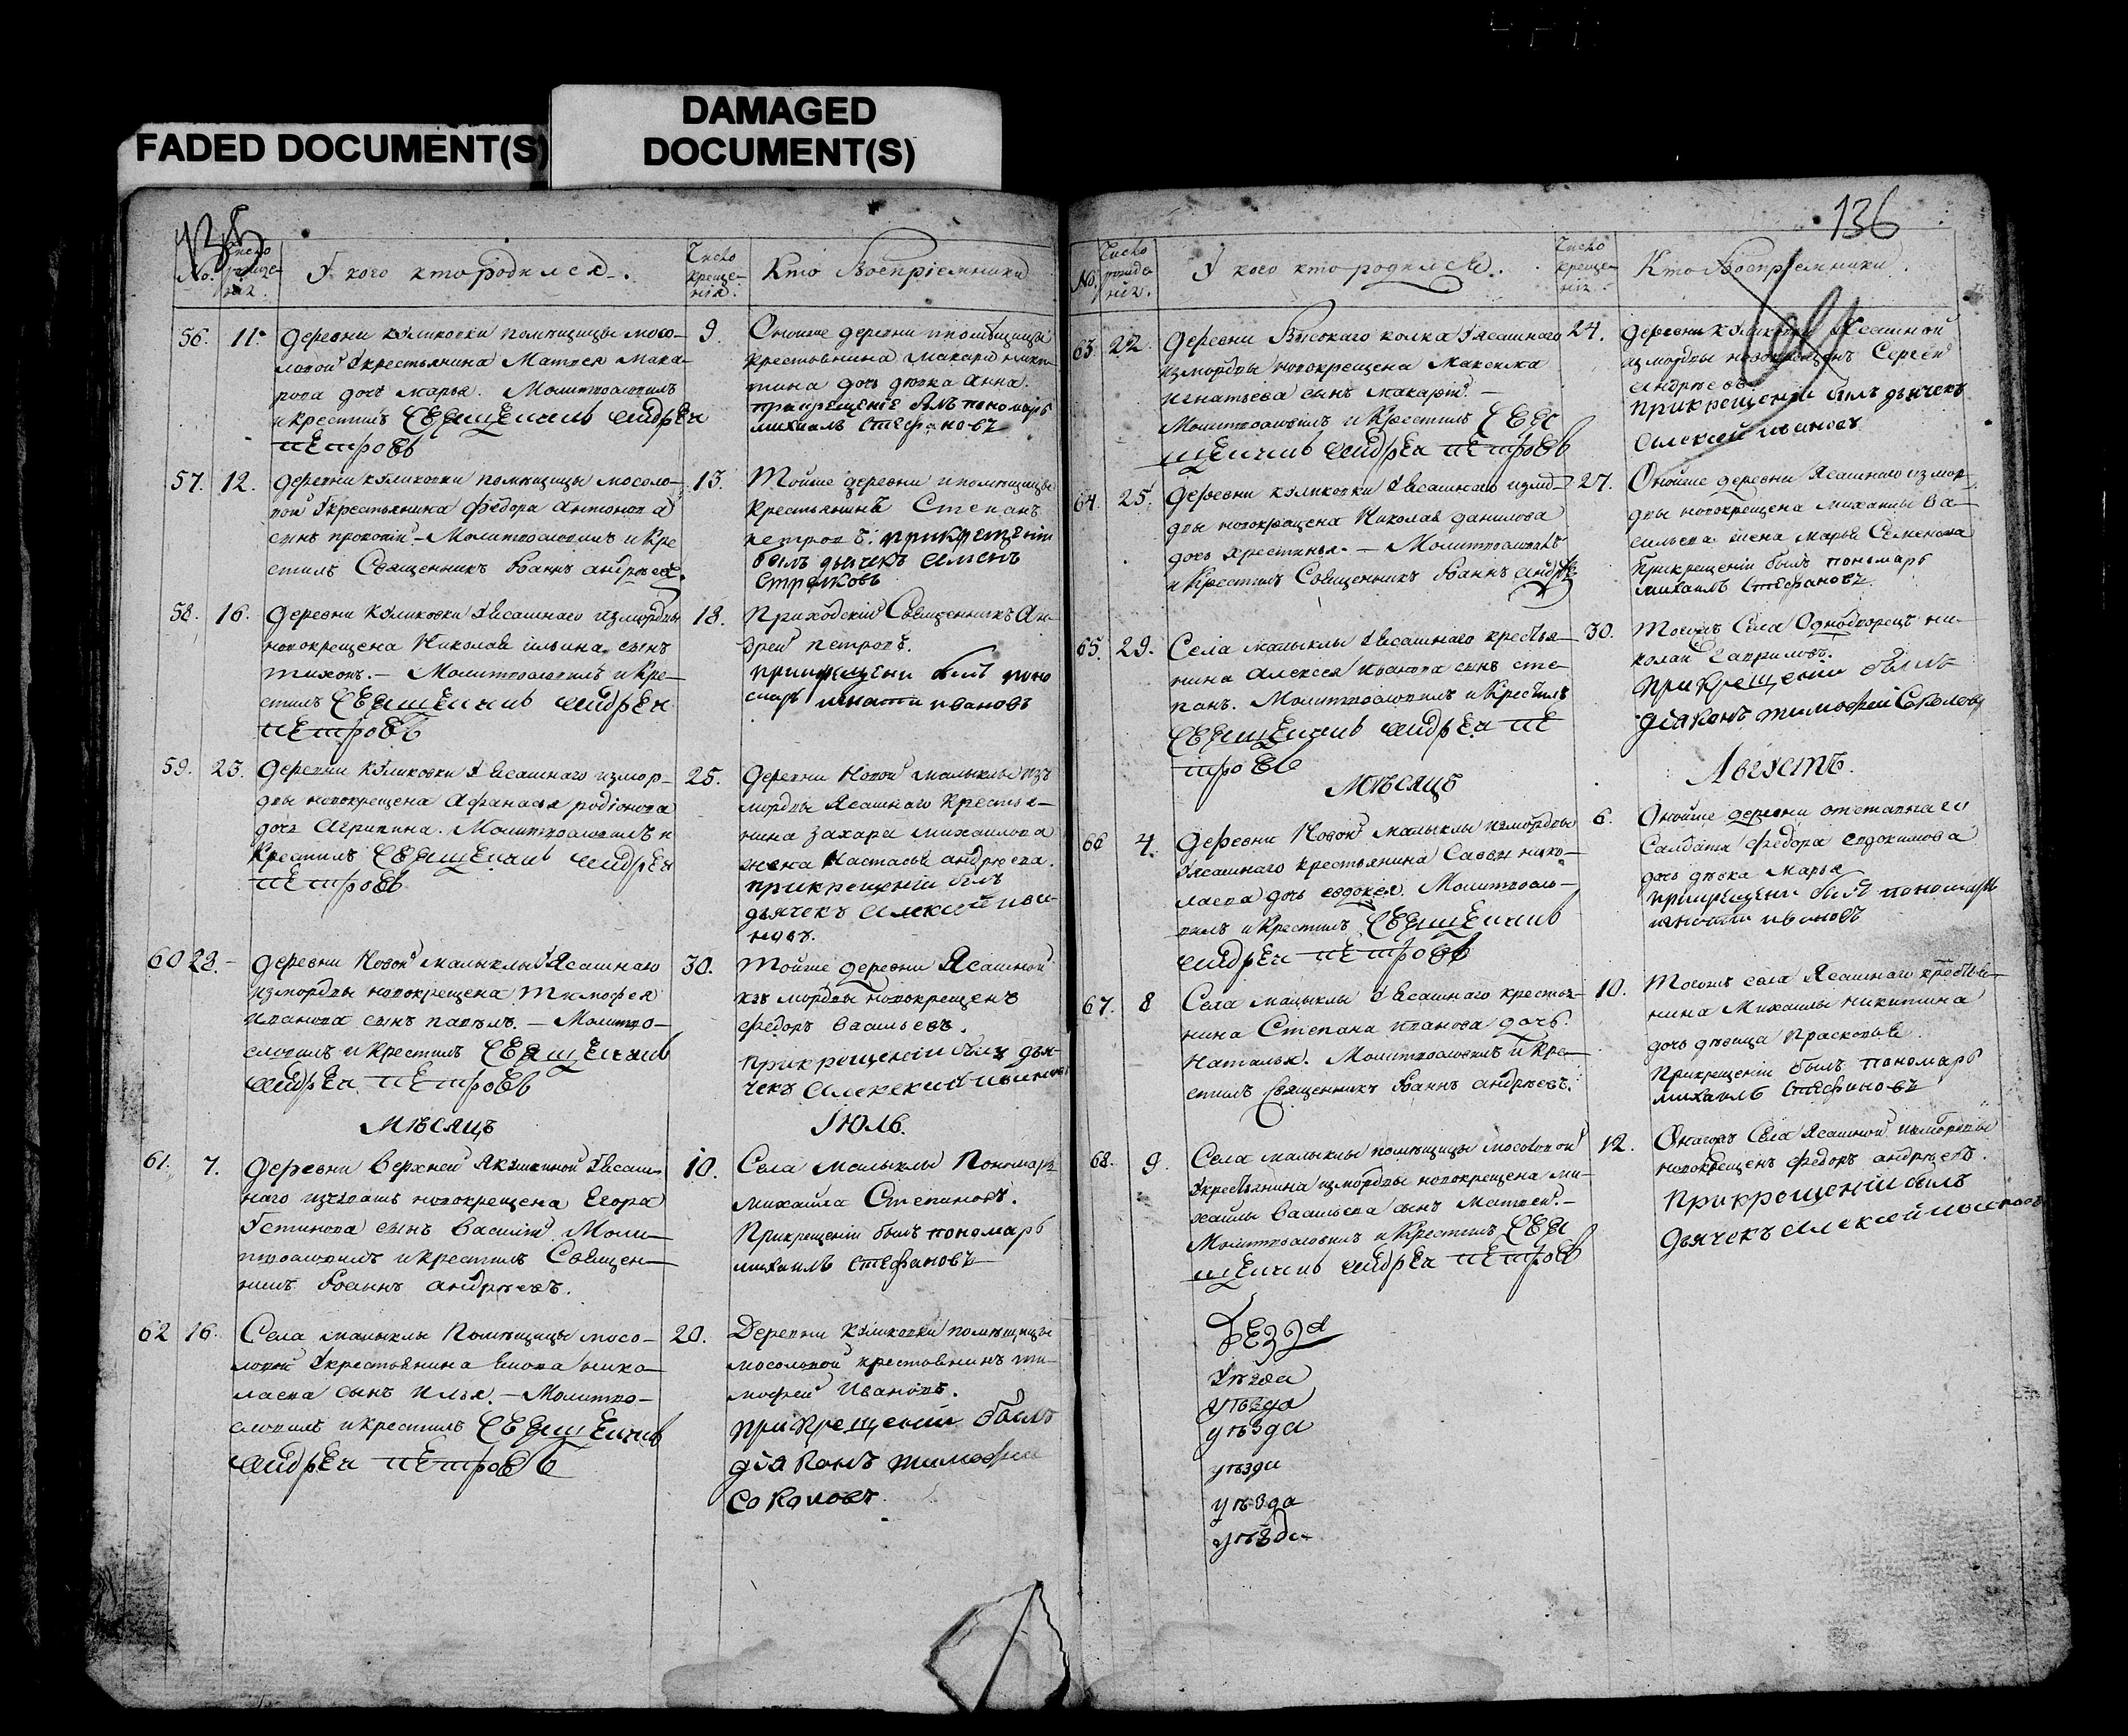 FADED DOCUMENT(S)
DAMAGED
DOCUMENT(S)
135
No.
Число
рожде-
нія.
У кого кто родился.
Число
креще-
нія.
Кто Воспріемники
56. 11.
деревни куликовки помѣщицы мосо-
ловой у крестьянина Матвея мака-
рова дочь марья. Молитвословилъ
и крестилъ священникъ андреи
петровъ
9.
Оноиже деревни помѣщицы
крестьянина макара ники-
тина дочь девка Анна.
при крещеніе былъ пономарь
михаилъ стефановъ
57. 12.
деревни куликовки помѣщицы мосоло-
вой у крестьянина федора антонова
сынъ прокопій. Молитвословилъ и кре
стилъ Священникъ Іоаннъ андреевъ.
13.
Тойже деревни помѣщицы
крестьянинъ Степанъ
петровъ. при крещеніи
былъ дьячекъ
58. 16.
деревни куликовки у Ясашнаго измордвы
новокрещена Николая ильина сынъ
тихонъ. Молитвословилъ и кре-
стилъ священникъ андреи
петровъ
18.
Приходскій Священникъ Ан-
дрей петровъ.
при крещени былъ поно
марь игнатеи ивановъ
59. 23.
деревни куликовки у Ясашнаго измор-
двы новокрещена Афанасья родіонова
дочь Агрипина. Молитвословилъ и
крестилъ священникъ андреи
петровъ
25.
деревни новой малыклы изъ
мордвы Ясашнаго крестья-
нина захара михаилова
жена Настасья андреева.
при крещеніи былъ
дьячекъ алексеи ива-
новъ.
60 28.
деревни новой малыклы у Ясашнаго
измордвы новокрещена тимофея
иванова сынъ павелъ. Молитво-
словилъ и крестилъ священникъ
андреи петровъ
30.
Тойже деревни Ясашной
изъ мордвы новокрещенъ
федоръ васильевъ.
при крещеніи былъ дья-
чекъ алексеи ивановъ
Мѣсяцъ Іюль.
61. 7.
деревни верхней Якушкиной у Ясаш-
наго изчювашъ новокрещена Егора
Устинова сынъ василій. Моли-
твословилъ и крестилъ Священ-
никъ Іоаннъ андреевъ.
10.
Села малыклы Пономарь
михаила Степановъ.
При крещеніи былъ пономарь
михаилъ стефановъ
62 16.
Села малыклы Помѣщицы мосо-
ловой у крестьянина нико-
лаева сынъ илья. Молитво-
словилъ и крестилъ священникъ
андреи петровъ
20.
Деревни куликовки помѣщицы
мосоловой крестьянинъ ти-
мофей Ивановъ.
при крещеніи былъ
діаконъ тимофеи
соколовъ
136
No.
Число
рожде
нія.
У кого кто родился.
Число
креще-
нія.
Кто Воспріемники.
63. 22.
деревни Высокаго колка у Ясашнаго
измордвы новокрещена Максима
игнатьева сынъ макарій.
Молитвословилъ и Крестилъ свя
щенникъ андреи петровъ
24.
деревни куликовки Ясашной
из мордвы новокрещенъ Сергей
андреевъ.
При крещеніи былъ дьячекъ
алексеи ивановъ
64. 25.
деревни куликовки у Ясашнаго измо-
двы новокрещена Николая данилова
дочь христинья. Молитвословилъ
и Крестилъ Священникъ Іоаннъ андрее
27.
Оноиже деревни Ясашнаго измор-
двы новокрещена михаилы ва-
сильева жена марья Семенова
При крещеніи былъ пономарь
михаилъ стефановъ
65. 29.
Села малыклы у Ясашнаго крестья-
нина алексея иванова сынъ сте-
панъ. Молитвословилъ и Крестилъ
священникъ андреи пе
тровъ
30.
Тогожъ Села Однодворецъ ни-
колай Гавриловъ.
при крещеніи былъ
діаконъ тимофеи Соколовъ
Мѣсяцъ Августъ.
66 4.
деревни новой малыклы измордвы
у Ясашнаго крестьянина Савы нико-
лаева дочь евдокея. Молитвосло-
вилъ и Крестилъ священникъ
андреи петровъ
6.
Оноиже деревни отставнаго
Салдата федора евдокимова
дочь девка марья
при крещени былъ пономарь
игнатеи ивановъ
67. 8
Села малыклы у Ясашнаго крестья-
нина Степана иванова дочь
Наталья. Молитвословилъ и Кре-
стилъ Священникъ Іоаннъ андреевъ.
10.
Тогожъ села Ясашнаго крестья-
нина Михаилы никитина
дочь девица Прасковья.
При крещеніи былъ пономарь
михаилъ стефановъ
68. 9.
Села малыклы помѣщицы мосоловой
у крестьянина измордвы новокрещена ми-
хаилы васильева сынъ матвеи.
Молитвословилъ и Крестилъ свя
щенникъ андреи петровъ
12.
Онагожъ Села Ясашной измордвы
новокрещенъ федоръ андреевъ.
При крещеніи былъ
дьячекъ алексеи ивановъ
уѣзда
уѣзда
уѣзда
уѣзда
уѣзда
уѣзда